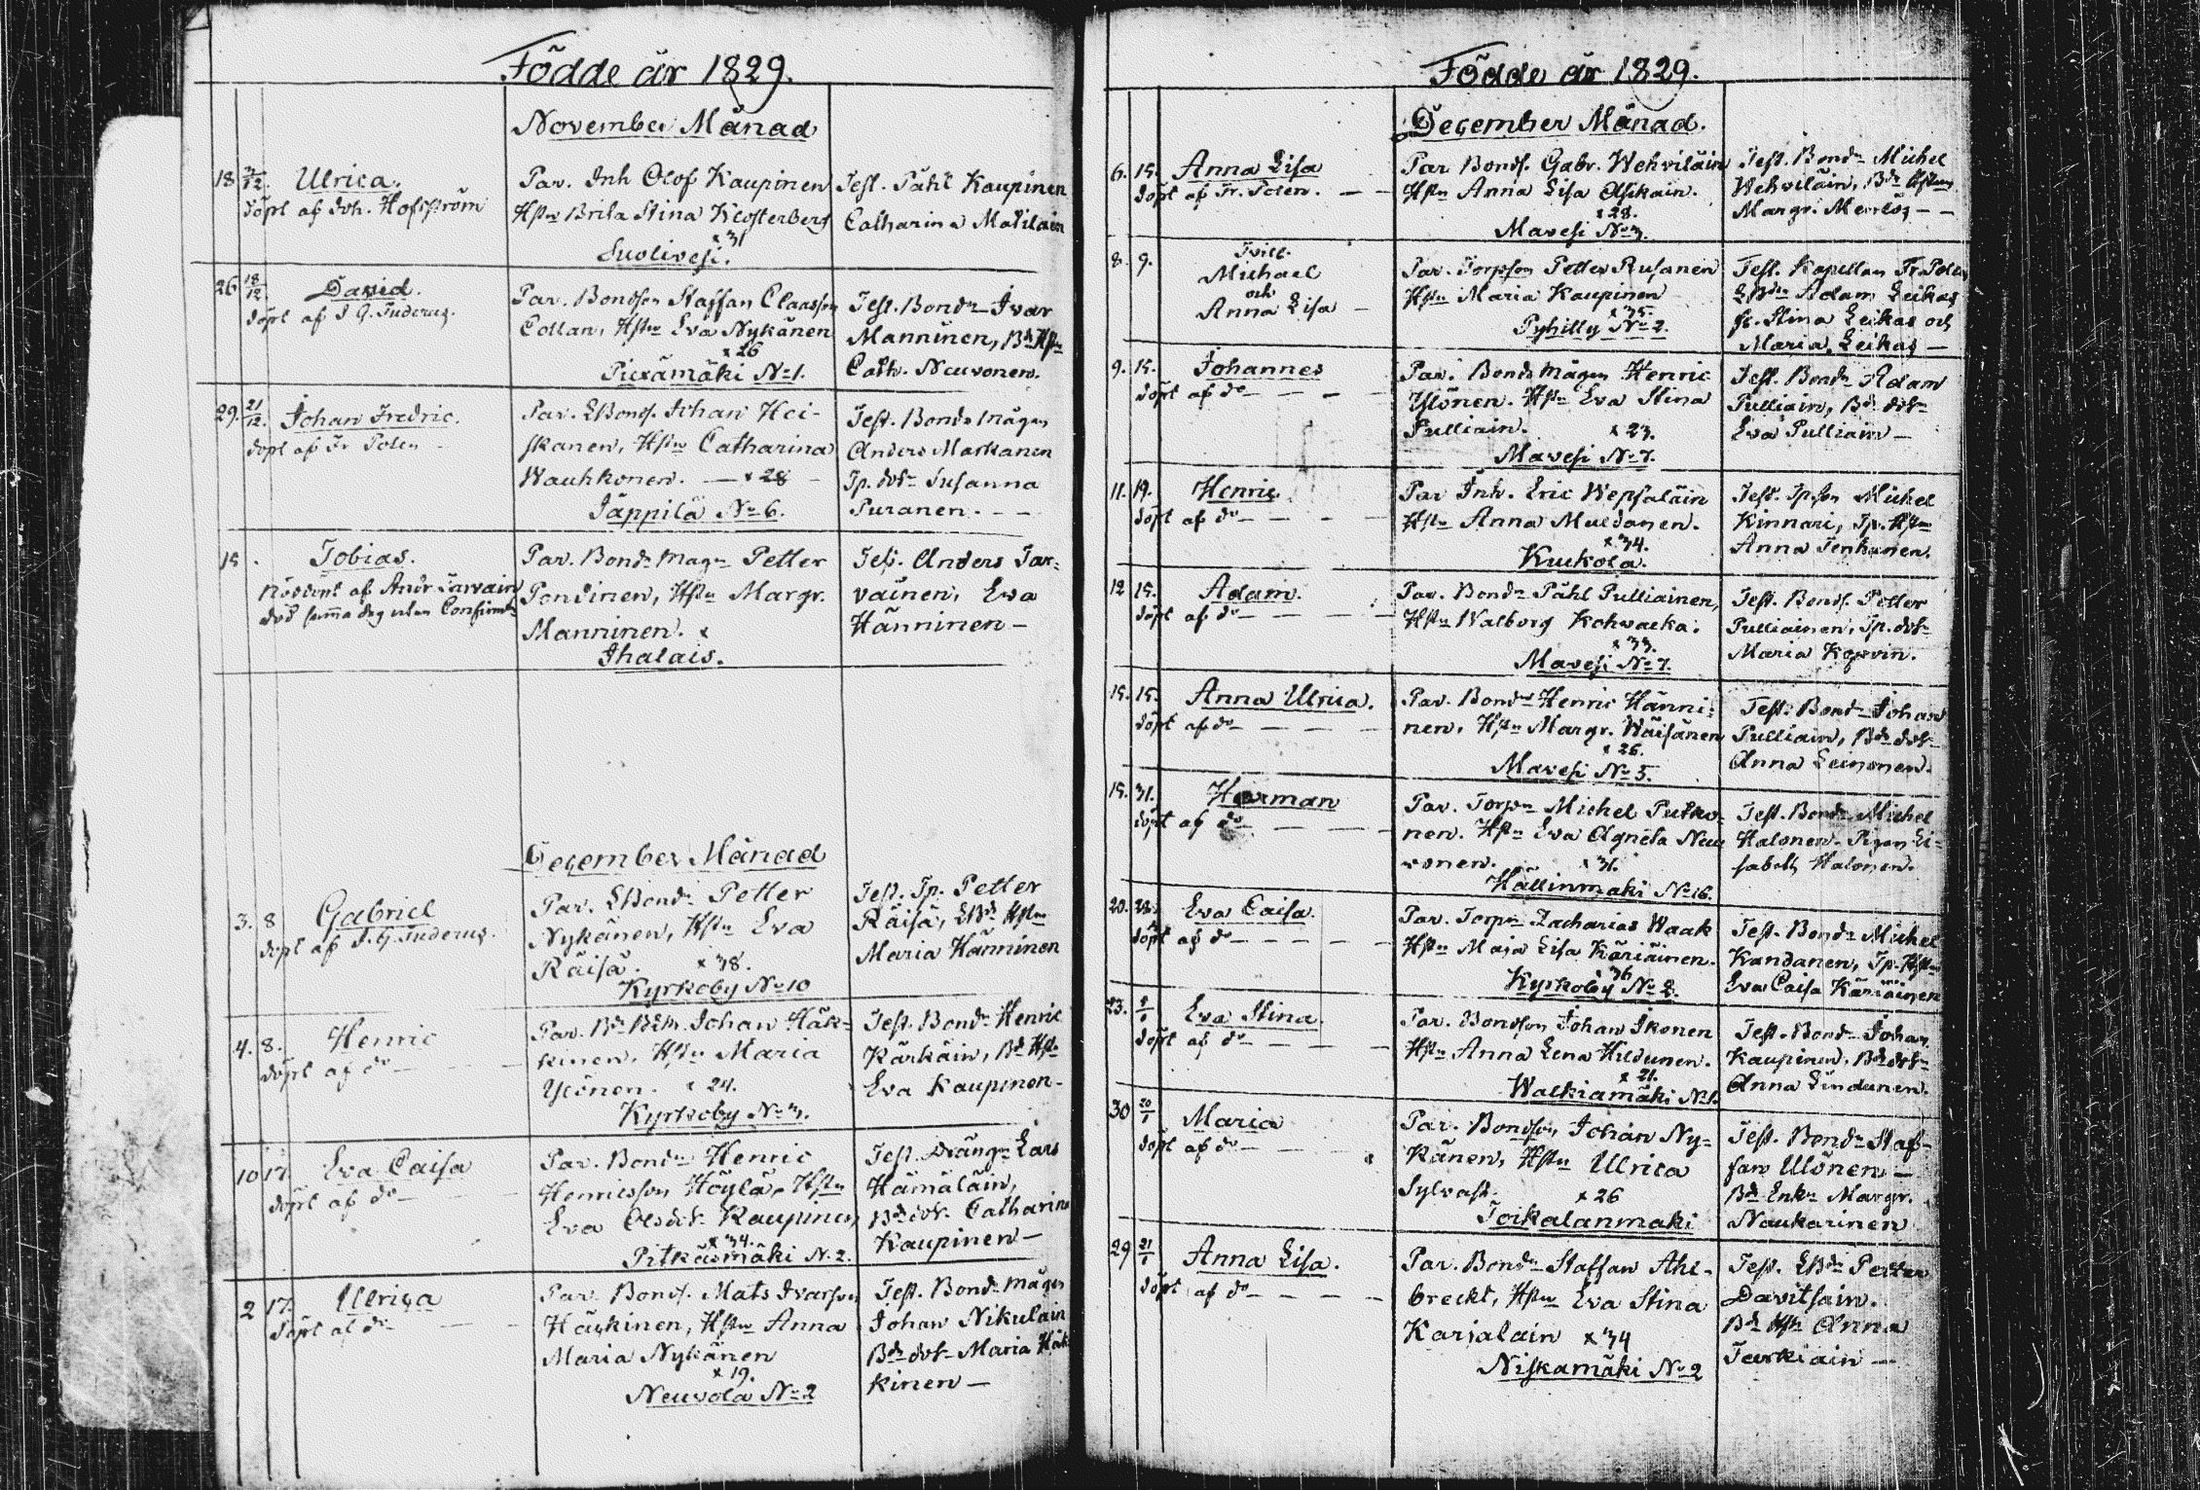 Födde år 1829.
November Månad
18 3/12. Ulrica.
döpt af Joh. Hofström
Par. Inh Olof Kaupinen
Hstu Brita Stina Klosterberg
x 31
Suolivesi.
Test. Påhl Kaupinen
Catharina Matilain
26 18/12 David.
döpt af J G. Tuderus.
Par. Bondson Staffan Claasson
Collan, Hstu Eva Nykänen
x 26
Piexämäki No 1.
Test. Bondn Ivar
Manninen, Bd Hstu
Cath. Neuvonen.
29. 21/12. Johan Fredric.
döpt af Fr Polen
Par. LBonds. Johan Hei-
skanen, Hstu Catharina
Wauhkonen. — x 28 —
Jäppilä No 6.
Test. Bonds mågen
Anders Markanen
Tp. dotr Susanna
Puranen. - -
15 . Tobias.
Nöddöpt af Andr Tarvain
död samma dag utan Confirmn
Par. Bonds Mågn Petter
Pondinen, Hstu Margr.
Manninen. x
Ihalais.
Test. Anders Tar-
vainen, Eva
Hänninen —
December Månad
3. 8 Gabriel
döpt af J. G. Tuderus.
Par. LBondn Petter
Nykänen, Hstu Eva
Räisä. x 38.
Kyrkoby No 10
Test. Tp. Petter
Räisä, LBd Hstu
Maria Hänninen
4. 8. Henric
döpt af do
Par. Bd Johan Häk-
kinen, Hstu Maria
Ylönen. x 24.
Kyrkoby No 3.
Test. Bondn Henric
Kärkäin, Bd Hstu
Eva Kaupinen-
10 17. Eva Caisa
döpt af do
Par. Bondn Henric
Henricsson Höylä, Hstu
Eva Olsdotr Kaupinen
x 34.
Pitkäsmäki N. 2.
Test. Drängn Lars
Hämäläin,
Bd dotr. Catharina
Kaupinen —
2 17. Ulrica
döpt af do
Par. Bonds. Mats Ivarson
Häckinen, Hstu Anna
Maria Nykänen
x 19.
Neuvola No 2
Test. Bonds mågen
Johan Nikulain
Bds dotr Maria Häk
kinen —
Födde år 1829.
December Månad.
6. 15. Anna Lisa
döpt af Fr. Polen. — —
Par Bonds. Gabr. Wehviläin
Hstu Anna Lisa Asikain.
x 28.
Mavesi No 3.
Test. Bondn Michel
Wehviläin, Bds Hstun
Margr.
8. 9. Tvill.
Michael
och
Anna Lisa —
Par. Torpson Petter Rusanen
Hstu Maria Kaupinen
x 35.
Pyhilty No 2.
Test. Kapellan Fr Polen
LBdn Adam Leikas
fr. Stina Leikas och
Maria Leikas —
9. 15. Johannes
döpt af do — — — —
Par. Bonds Mågen Henric
Ylönen. Hstu Eva Stina
Pulliain. x 23.
Mavesi No 7.
Test. Bondn Adam
Pulliain, Bds dotr
Eva Pulliain —
11. 19. Henric
döpt af do — — — —
Par Inh. Eric Wepsäläin
Hstu Anna Muldonen.
x 34.
Kuckola.
Test. Tpson Michel
Kinnari, Tp. Hstu
Anna Tenhunen.
12 15. Adam.
döpt af do — — — —
Par. Bondn Påhl Pulliainen,
Hstu Walborg Kohvacka.
x 33.
Mavesi No 7.
Test. Bonds. Petter
Pulliainen, Tp. dotr
Maria
15. 15. Anna Ulrica.
döpt af do — — — —
Par. Bondn Henric Hänni-
nen, Hstu Margr. Wäisänen
x 26.
Mavesi No 5.
Test. Bondn Johan
Pulliain, Bds dotr
Anna Leinonen.
15. 31. Herman
döpt af do — — — —
Par. Torpn Michel Putko-
nen. Hstu Eva Agneta Neu
vonen. x 31.
Hällinmäki No 16.
Test. Bondn Michel
Halonen. Pigan Li-
sabeth Halonen.
20. Eva Caisa.
döpt af do — — — —
Par. Torpn Zacharias Waak
Hstu Maja Lisa Käriäinen.
36
Kyrkoby No 2.
Test. Bondn Michel
Kandanen, Tp. Hstu
Eva Caisa Käriäinen
23. Eva Stina.
döpt af do — — — —
Par. Bondson Johan Ikonen
Hstu Anna Lena Hudunen.
x 21.
Walkiamäki No 1.
Test. Bondn Johan
Kaupinen, Bds dotr
Anna Lindunen.
30 20/1 Maria
döpt af do — — —
Par. Bondson, Johan Ny-
känen, Hstu Ulrica
Sylvast. x 26
Toikalanmäki
Test. Bondn Staf-
fan Ulönen —
Bds Enkn Margr.
Naukarinen
29 21/1 Anna Lisa.
döpt af do — — — —
Par. Bondn Staffan Ahl-
breckt, Hstu Eva Stina
Karjalain x 34
Niskamäki No 2
Test. LBdn Petter
Davitsain.
Bds Hstu Anna
Teurkiain —